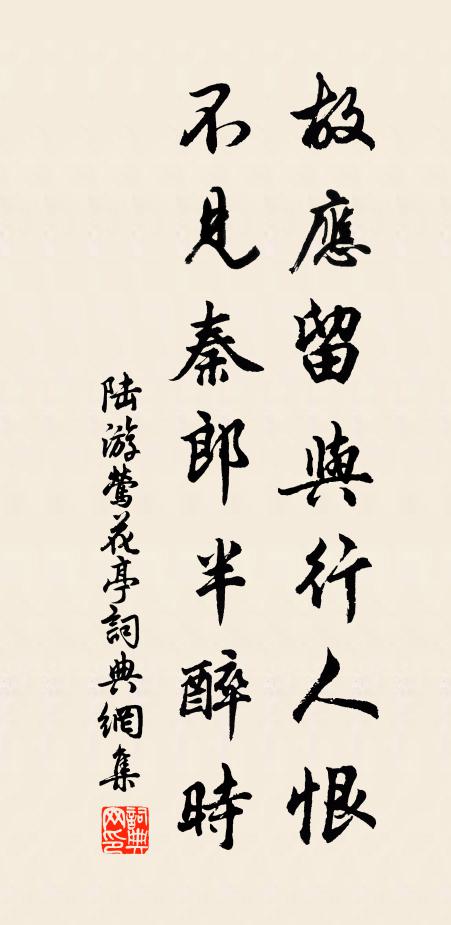 故應留與行人恨
不見秦郎半醉時
陆游鶯花亭詞典網集
詞典网印